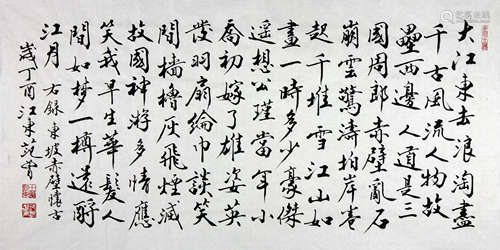 大江東去浪淘盡
千古風流人物故
壘西邊人道是三
國周郎赤壁亂石
崩雲驚濤拍岸卷
起千堆雪江山如
畫一時多少豪傑
遥想公瑾當年小
喬初嫁了雄姿英
發羽扇綸巾談笑
間檣櫓灰飛煙滅
故國神游多情應
笑我早生華髮人
間如夢一樽還酹
江月 右錄東坡赤壁懷古
歲丁酉江東范曾